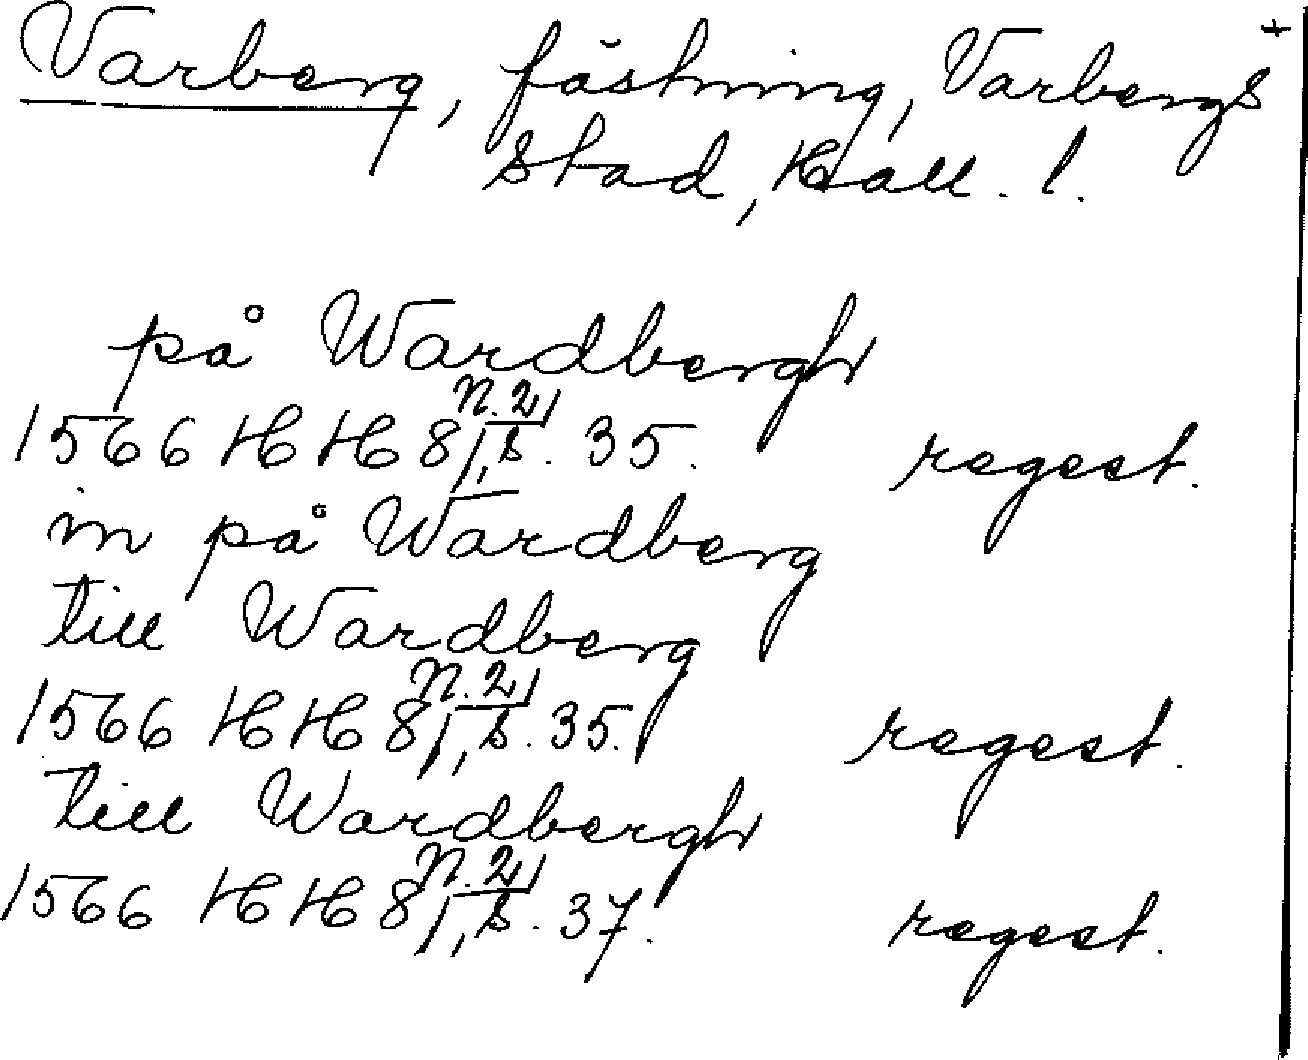 Varberg, fästning, Varbergs +
stad, Hall. l.
på Wardbergh
1566 HH 8/1, N.2, s. 35. regest.
in på Wardberg
till Wardberg
1566 HH 8/1, N.2, s. 35. regest.
till Wardbergh
1566 HH 8/1, N.2, s. 37. regest.